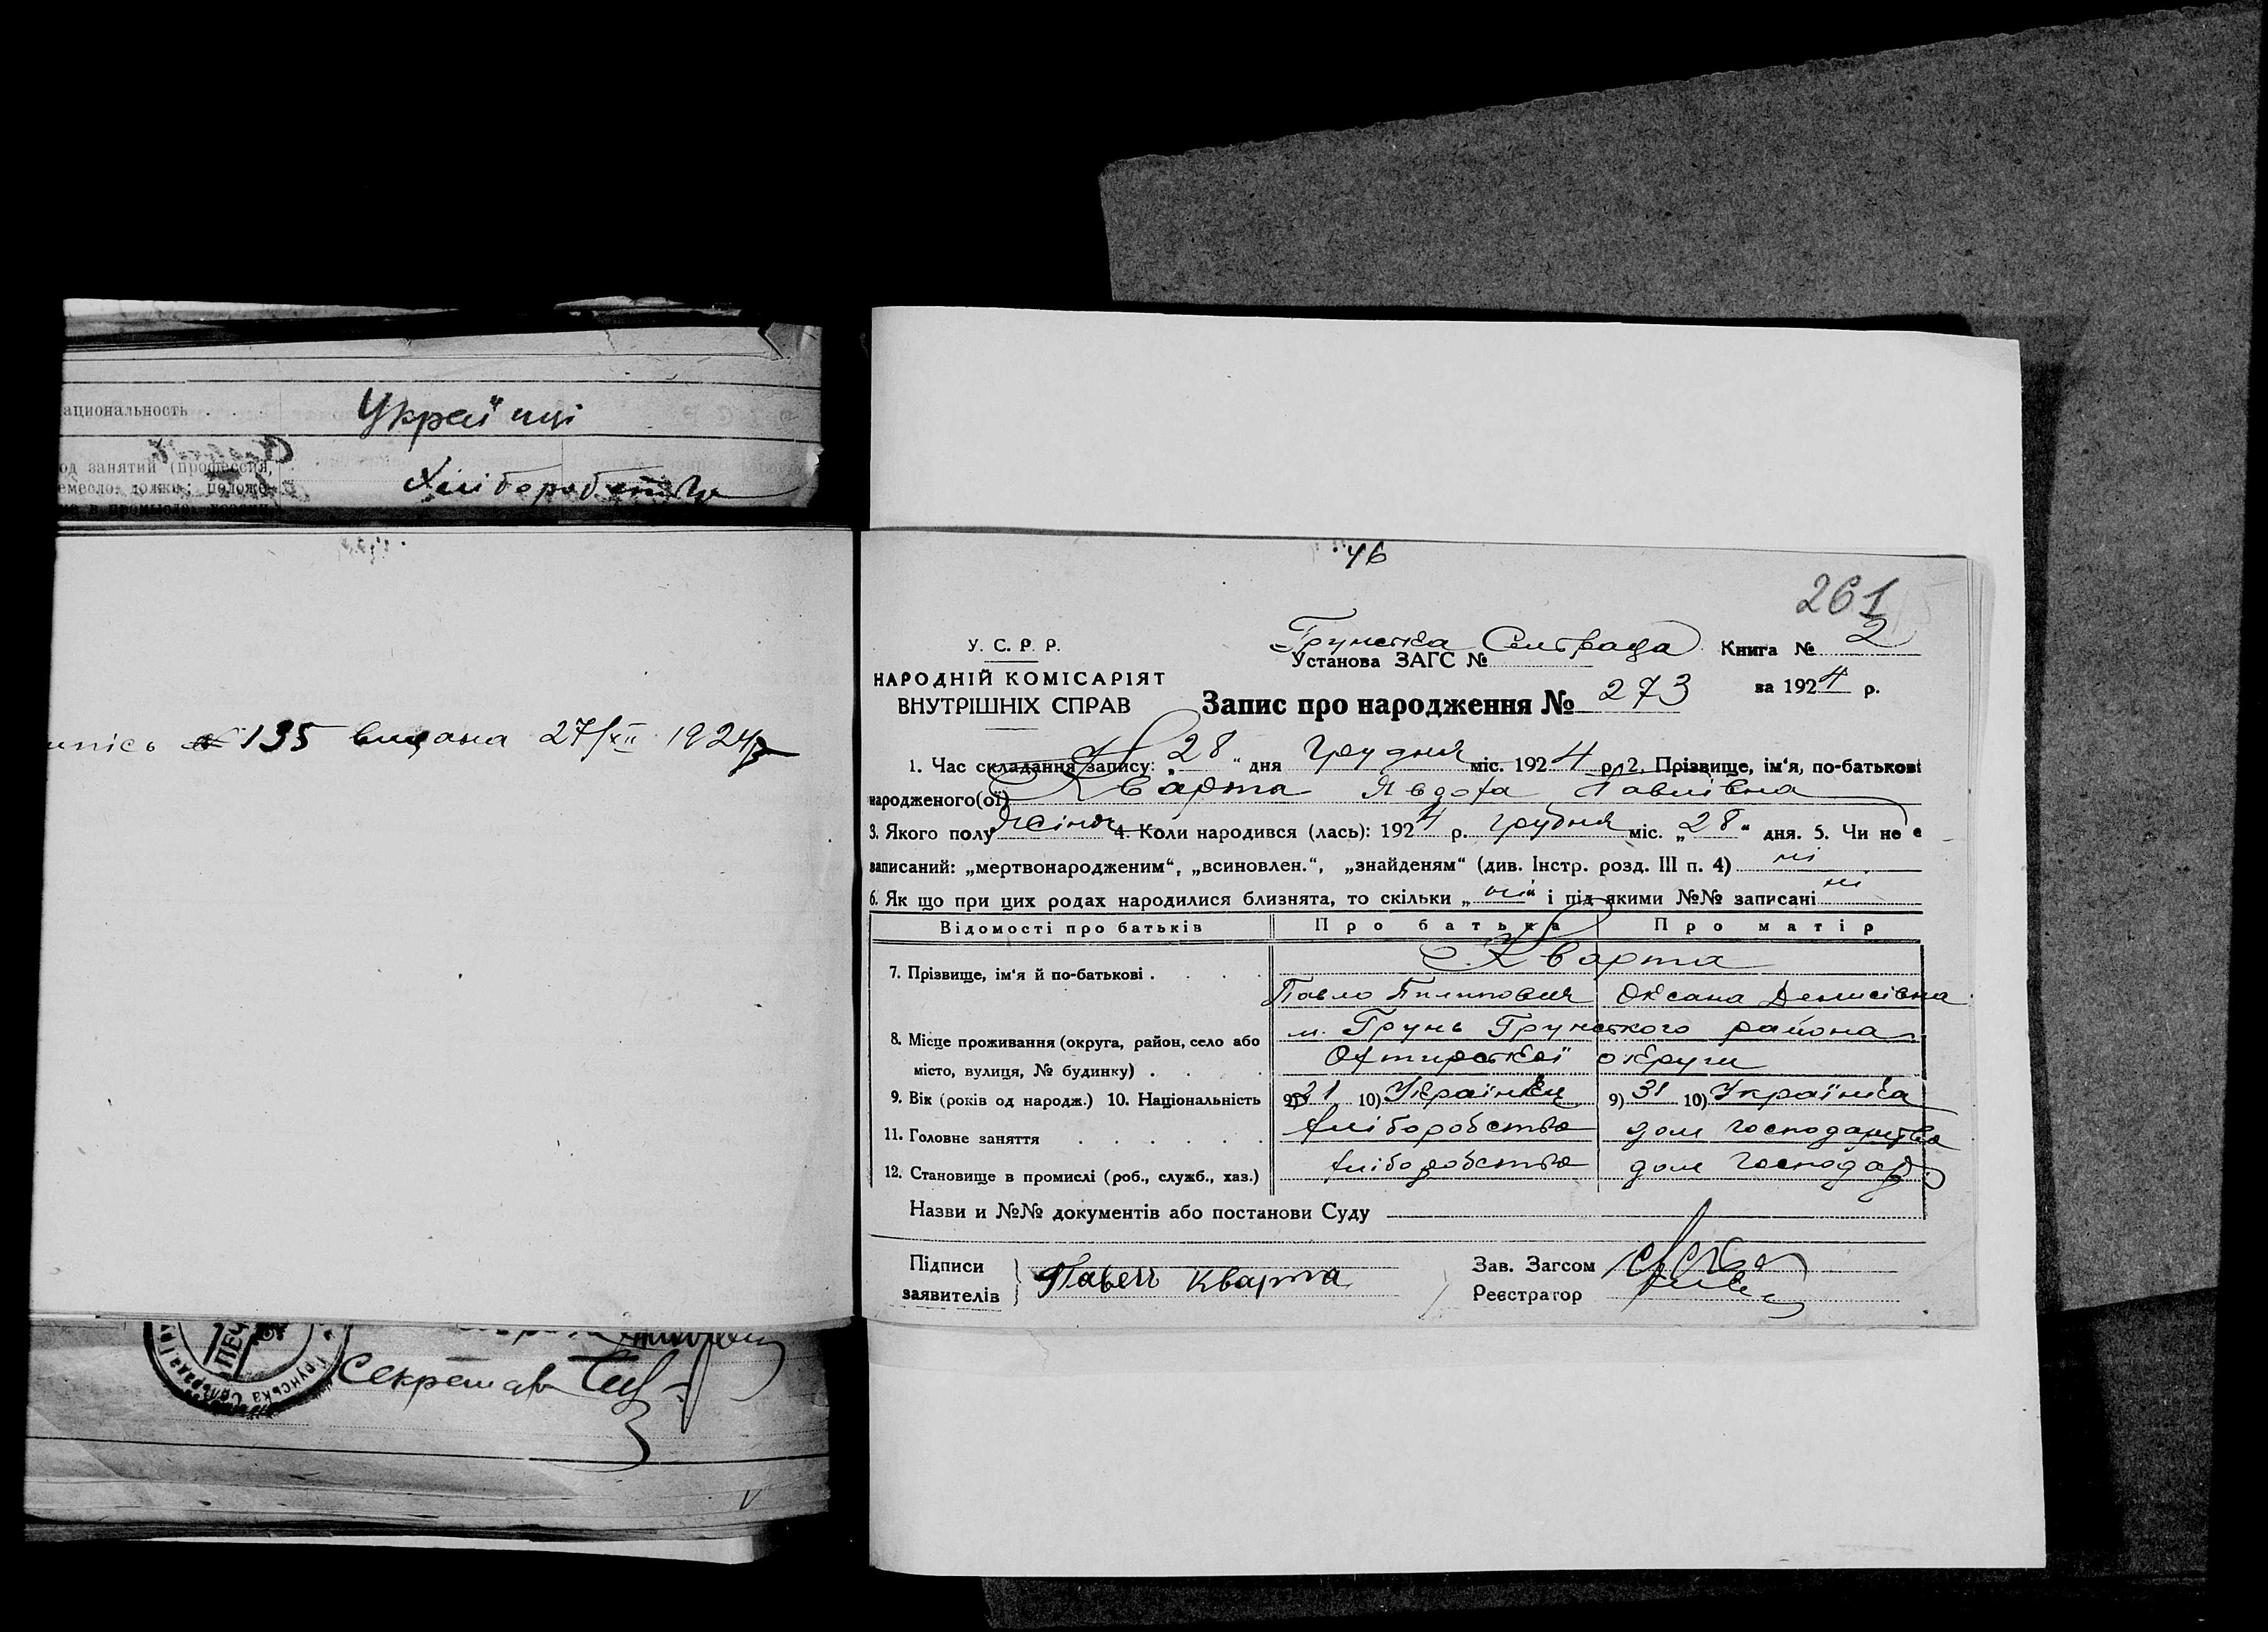 ациональность . . . Украї нці
од занятий (профессия,
емесло, должн; положе- Хліборобство
ие в промысле: хозяин,
ипісь № 135 видана 27/XII 1924 р
Секретар
46
261
У. С. Р. Р.
НАРОДНІЙ КОМІСАРІЯТ
ВНУТРІШНІХ СПРАВ
Грунська Сельрада Книга № 2
Установа ЗАГС №
за 1924 р.
Запис про народження № 273
1. Час складання запису: „28“ дня Грудня міс. 1924 р. 2. Прізвище, ім‘я, по-батькові
народженого(ої) Кварта Явдоха Павлівна
3. Якого полу жіноч 4. Коли народився (лась): 1924 р. грудня міс. „28“ дня. 5. Чи не є
записаний: „мертвонародженим“, „всиновлен.“, „знайденям“ (див. Інстр. розд. III п. 4) ні
6. Як що при цих родах народилися близнята, то скільки „ні“ і під якими №№ записані ні
Відомості про батьків Про батька Про матір
7. Прізвище, ім‘я й по-батькові . . . . Кварта
Павло Пилипович Оксана Денисівна
8. Місце проживання (округа, район, село або м. Грунь Грунського района
місто, вулиця, № будинку) . . . Охтирської округи
9. Вік (років од народж.) 10. Національність 9) 31 10) Українец 9) 31 10) Українка
11. Головне заняття . . . . . . хліборобство дом господарства
12. Становище в промислі (роб., служб., хаз.) хліборобство дом господар
Назви и №№ документів або постанови Суду
Підписи
заявителів Павел Кварта
Зав. Загсом
Реєстратор